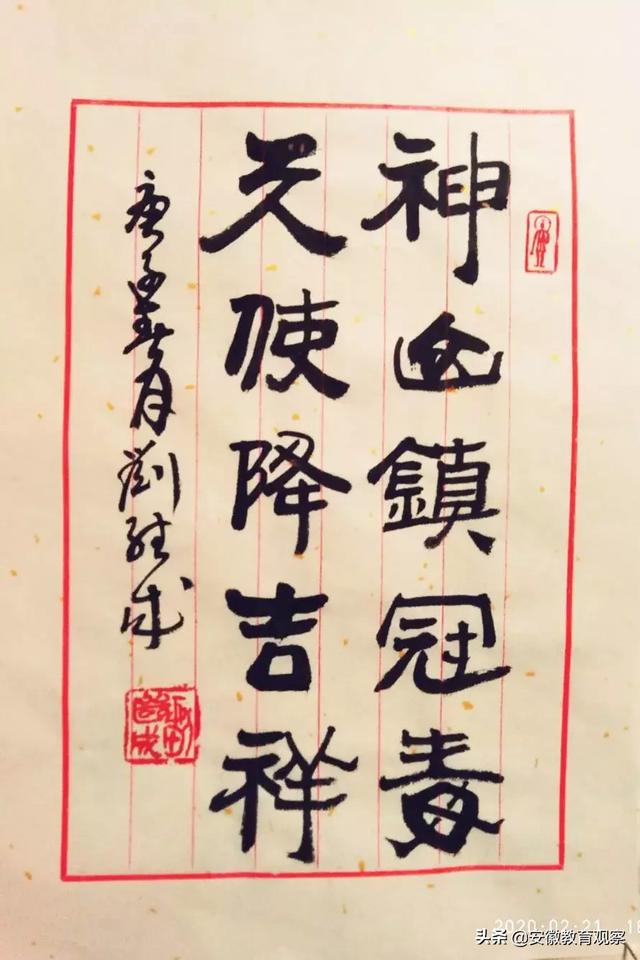 神鎮冠毒
天使降吉祥
庚子春月劉成
2020.02.21
头条 @安徽教育观察